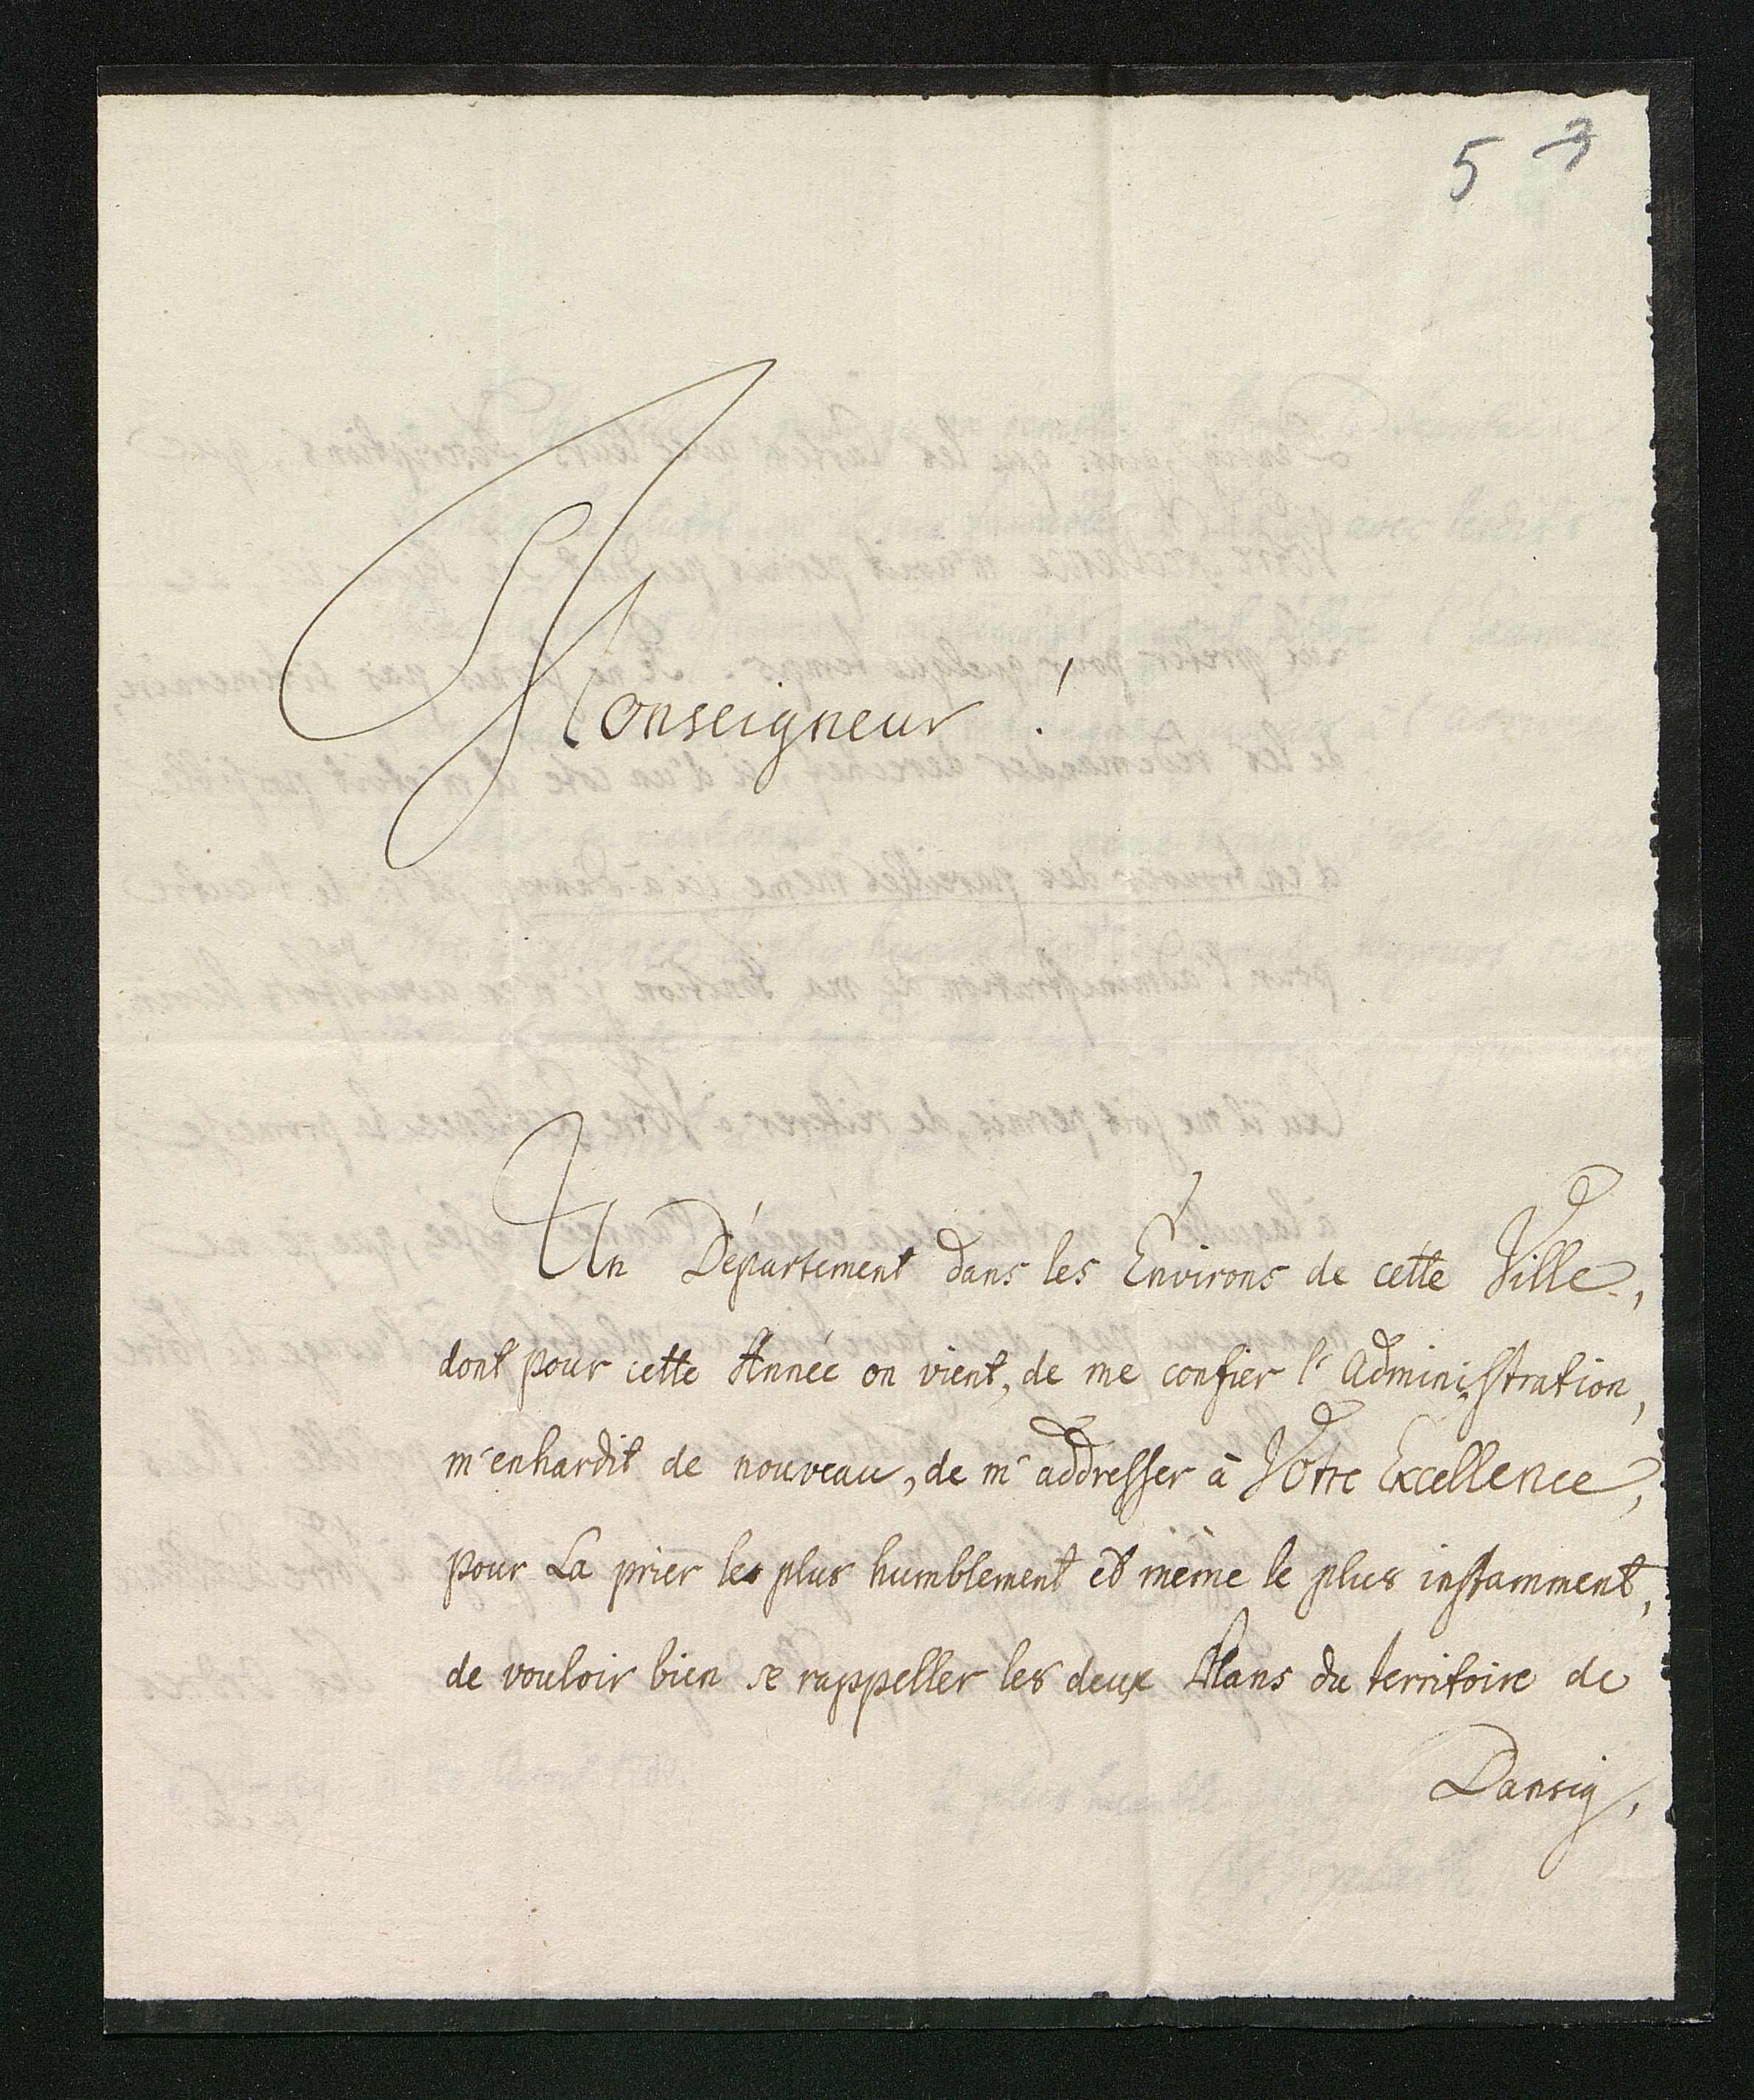 5 3
Monseigneur !
Un Département dans les Environs de cette Ville,
dont pour cette Année on vient, de me confier l'Administration,
m'enhardit de nouveau, de m'addresser à Votre Excellence,
pour La prier les plus humblement et même le plus instamment,
de vouloir bien se rappeller les deux Plans du territoire de
Dansig,